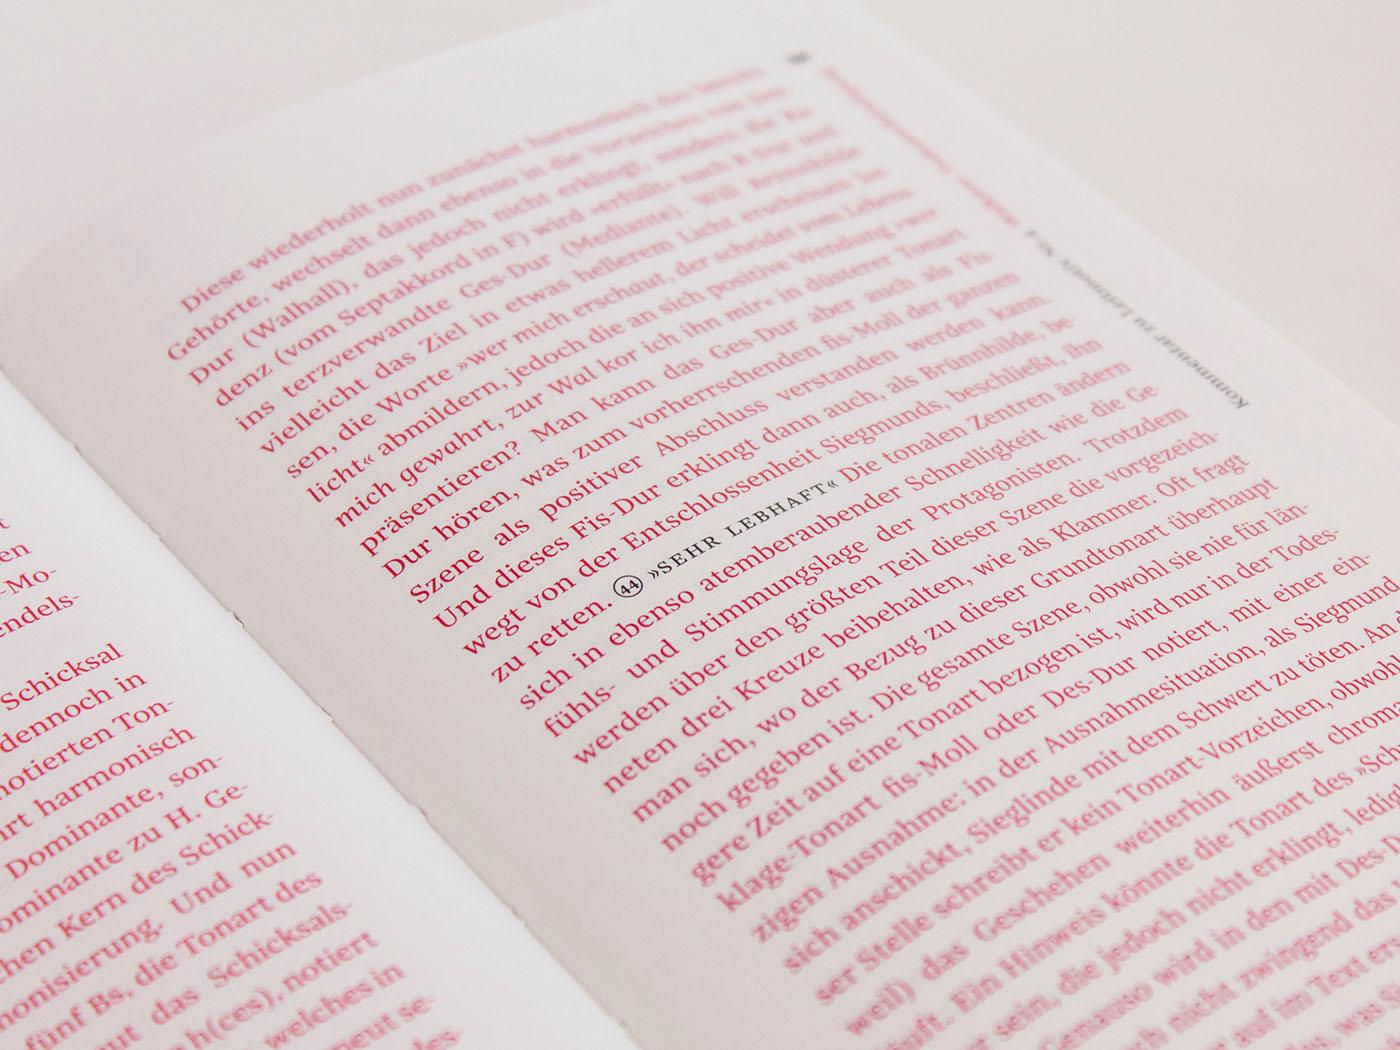 t
en
-Mo-
endels-
Schicksal
dennoch in
notierten Ton-
rt harmonisch
Dominante, son-
ominante zu H. Ge-
chen Kern des Schick-
nonisierung. Und nun
fünf Bs, die Tonart des
ut das Schicksals-
h(ces), notiert
welches in
neut se-
Diese wiederholt nun zunächst harmonisch das bereits
Gehörte, wechselt dann ebenso in die Vorzeichen von Des-
Dur (Walhall), das jedoch nicht erklingt, sondern die Ka-
denz (vom Septakkord in F) wird »erfüllt« nach B-Dur und
ins terzverwandte Ges-Dur (Mediante). Will Brünnhilde
vielleicht das Ziel in etwas hellerem Licht erscheinen las-
sen, die Worte »wer mich erschaut, der scheidet vom Lebens-
licht« abmildern, jedoch die an sich positive Wendung »wer
mich gewahrt, zur Wal kor ich ihn mir« in düsterer Tonart
präsentieren? Man kann das Ges-Dur aber auch als Fis-
Dur hören, was zum vorherrschenden fis-Moll der ganzen
Szene als positiver Abschluss verstanden werden kann.
Und dieses Fis-Dur erklingt dann auch, als Brünnhilde, be-
wegt von der Entschlossenheit Siegmunds, beschließt, ihn
zu retten. 44 »SEHR LEBHAFT« Die tonalen Zentren ändern
sich in ebenso atemberaubender Schnelligkeit wie die Ge-
fühls- und Stimmungslage der Protagonisten. Trotzdem
werden über den größten Teil dieser Szene die vorgezeich-
neten drei Kreuze beibehalten, wie als Klammer. Oft fragt
man sich, wo der Bezug zu dieser Grundtonart überhaupt
noch gegeben ist. Die gesamte Szene, obwohl sie nie für län-
gere Zeit auf eine Tonart bezogen ist, wird nur in der Todes-
klage-Tonart fis-Moll oder Des-Dur notiert, mit einer ein-
zigen Ausnahme: in der Ausnahmesituation, als Siegmund
sich anschickt, Sieglinde mit dem Schwert zu töten. An
ser Stelle schreibt er kein Tonart-Vorzeichen, obwohl
weil) das Geschehen weiterhin äußerst chrom
läuft. Ein Hinweis könnte die Tonart des »Sch
er sein, die jedoch nicht erklingt, ledig
Genauso wird in den mit Des-D
ch nicht zwingend das
er auf im Text ers
was S
Kommentar zu Leitmotiv Nr. 4